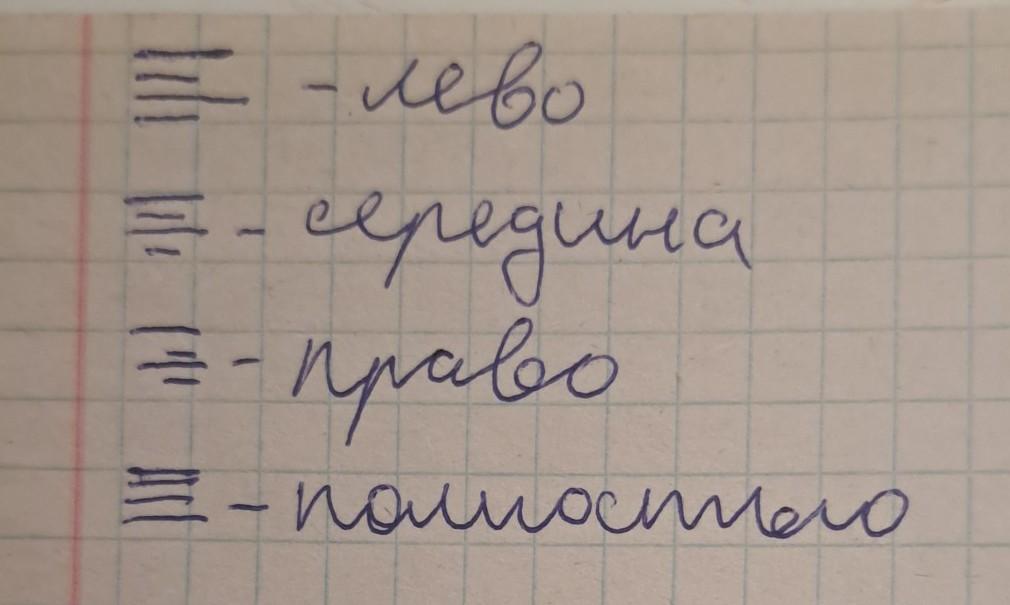 - лево
- середина
- право
- полностью